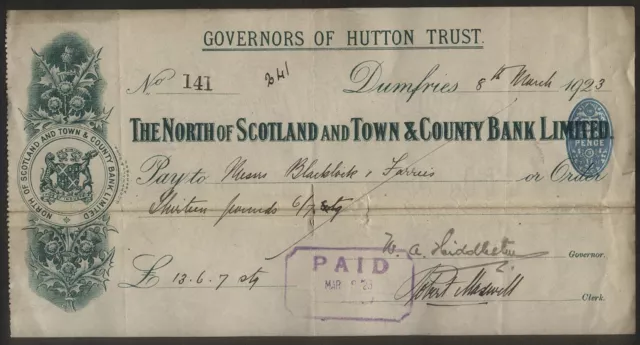 GOVERNORS OF HUTTON TRUST.
No 141
241
Dumfries 8th March 1923
THE NORTH OF SCOTLAND AND TOWN & COUNTY BANK LIMITED.
PENCE
NORTH OF SCOTLAND AND TOWN & COUNTY BANK LIMITED
Pay to Messrs Blacklock & Farries or Order
Thirteen pounds 6/7 stg
W. A.
Governor.
£ 13.6.7 stg
PAID
MAR 23
Robert Maxwell
Clerk.